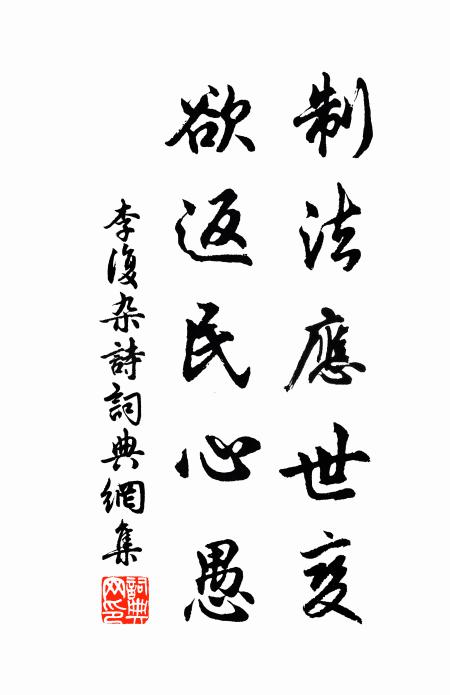 制法應世變
欲返民心愚
李復杂詩詞典網集
詞典网印